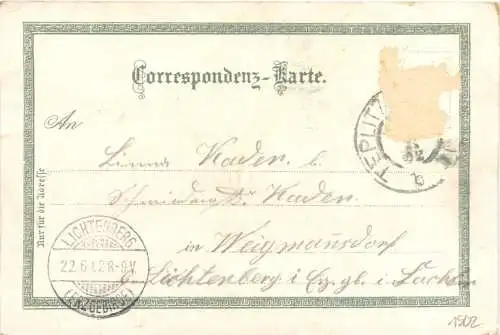 Correspondenz-Karte.
An
Nur für die Adresse
Kaden b.
Kaden
in Weigmansdorf
b. Lichtenberg i. Erzgb. i. Sachsen
TEPLITZ
LICHTENBERG
22.6.
8-9V.
(ERZGEBIRGE)
1902